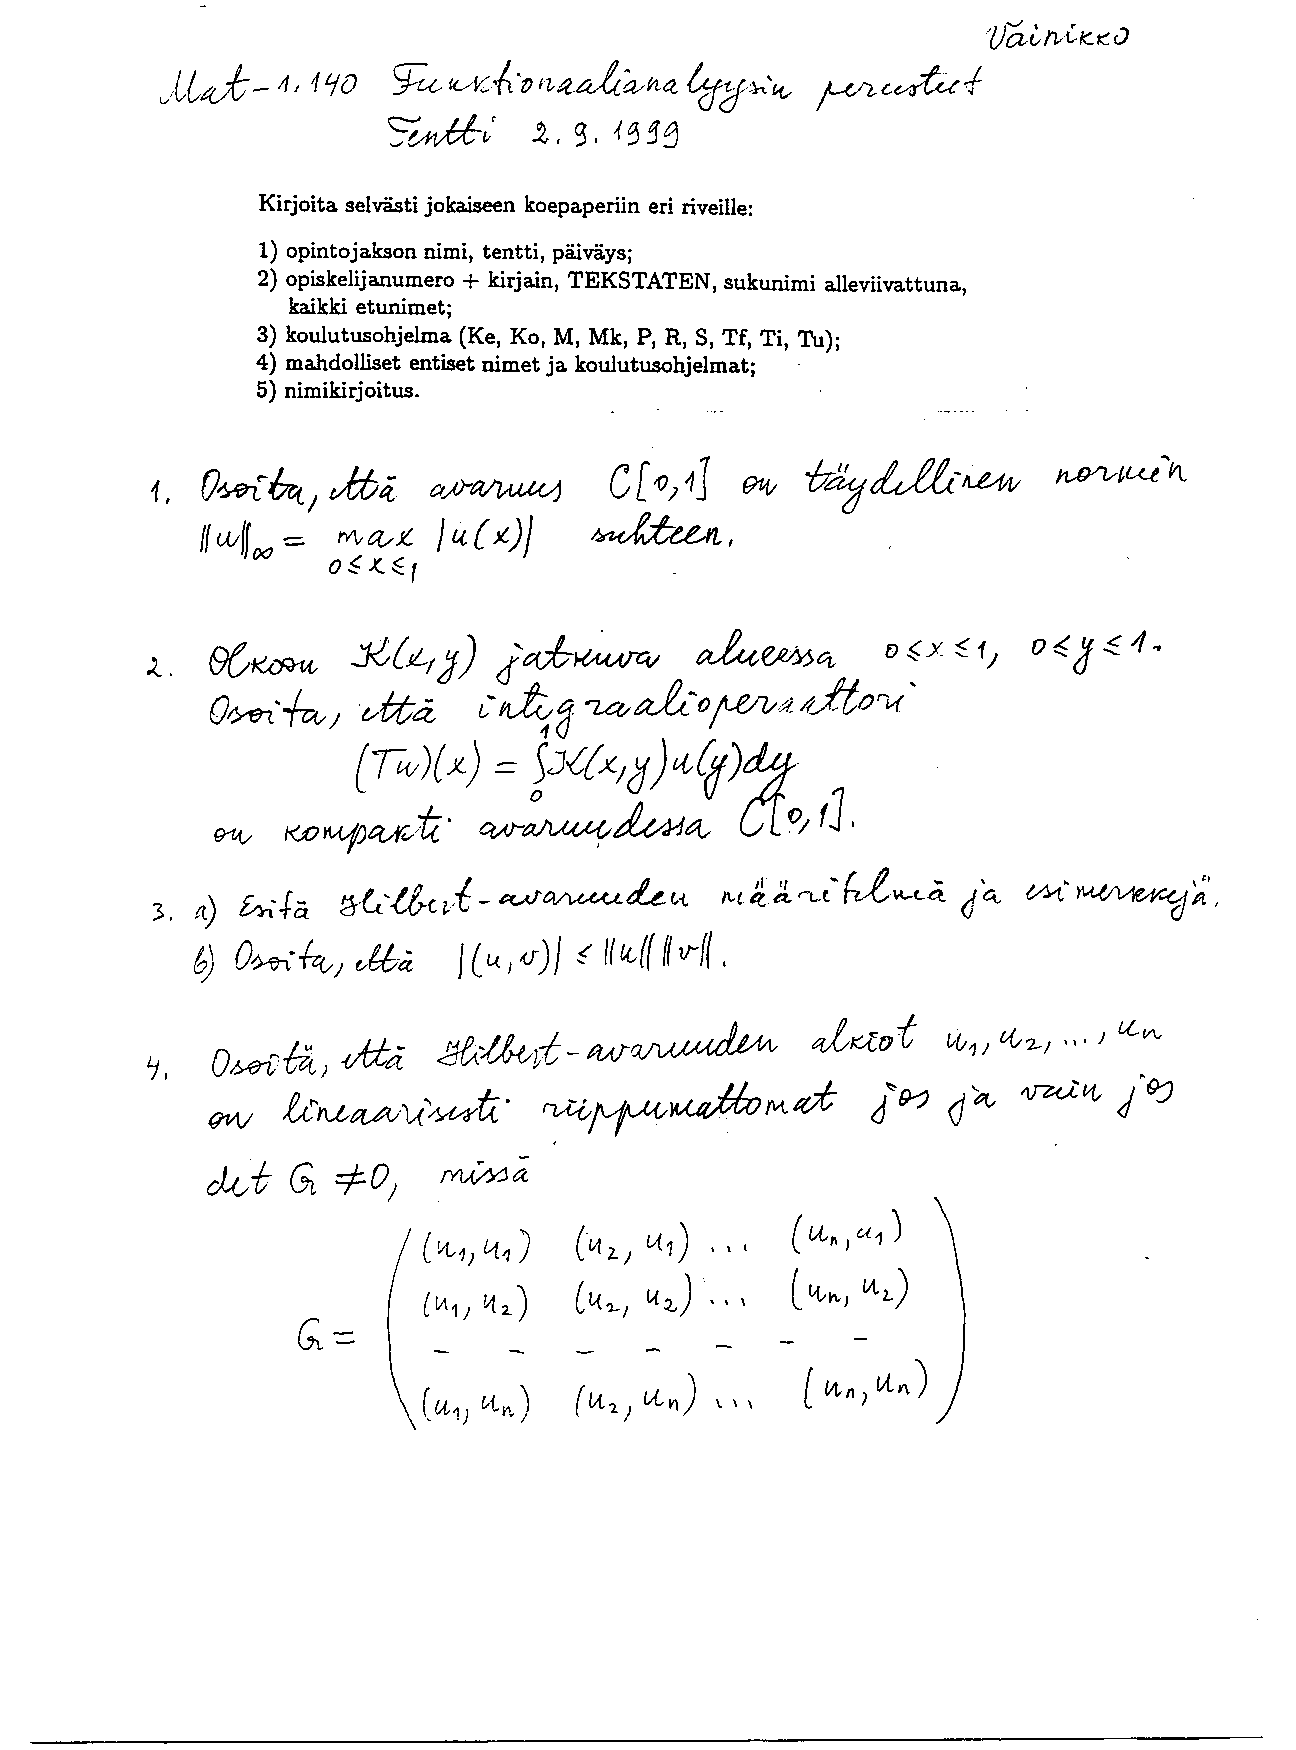 Vainikko
Mat-1.140 Funktionaalianalyysin perusteet
Tentti 2.9.1999
Kirjoita selvästi jokaiseen koepaperiin eri riveille:
1) opintojakson nimi, tentti, päiväys;
2) opiskelijanumero + kirjain, TEKSTATEN, sukunimi alleviivattuna,
kaikki etunimet;
3) koulutusohjelma (Ke, Ko, M, Mk, P, R, S, Tf, Ti, Tu);
4) mahdolliset entiset nimet ja koulutusohjelmat;
5) nimikirjoitus.
1. Osoita, että avaruus C[0,1] on täydellinen normin
‖u‖∞ = max |u(x)| suhteen.
0≤x≤1
2. Olkoon K(x,y) jatkuva alueessa 0≤x≤1, 0≤y≤1.
Osoita, että integraalioperaattori
(Tu)(x) = ∫₀¹K(x,y)u(y)dy
on kompakti avaruudessa C[0,1].
3. a) Esitä Hilbert-avaruuden määritelmä ja esimerkkejä.
b) Osoita, että |(u,v)| ≤ ‖u‖ ‖v‖.
4. Osoitä, että Hilbert-avaruuden alkiot u₁, u₂, ..., uₙ
on lineaarisesti riippumattomat jos ja vain jos
det G ≠ 0, missä
(u₁,u₁) (u₂,u₁) ... (uₙ,u₁)
(u₁,u₂) (u₂,u₂) ... (uₙ,u₂)
G = – – – – – – –
(u₁,uₙ) (u₂,uₙ) ... (uₙ,uₙ)